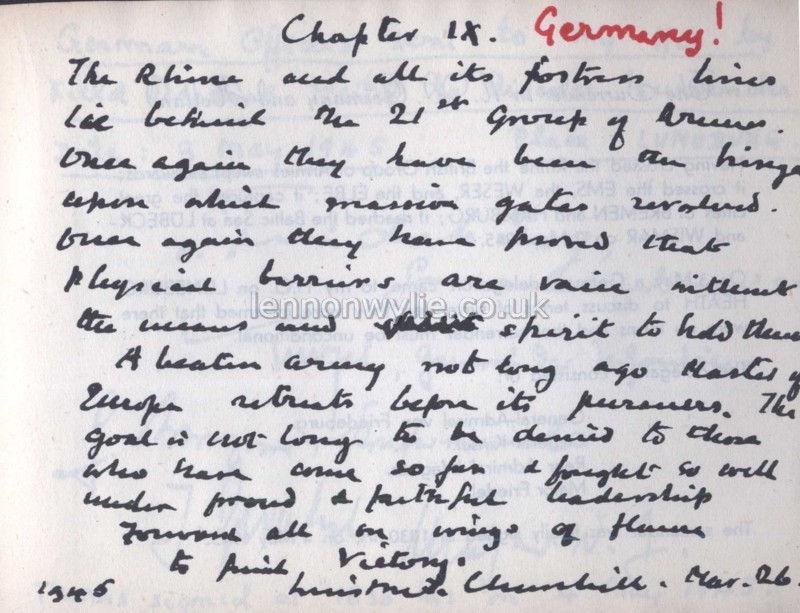 Chapter IX. Germany!
The Rhine and all its fortress lines
lie behind the 21st Group of Armies.
Once again they have been the hinge
upon which massive gates revolved.
Once again they have proved that
physical barriers are vain without
lennonwylie.co.uk
the means and spirit to hold them
A beaten army not long ago Master of
Europe retreats before its pursuers. The
goal is not long to be denied to those
who have come so far & fought so well
under proud & faithful leadership
Forward all on wings of flame
to final Victory.
1945 Winston S. Churchill. Mar. 26.